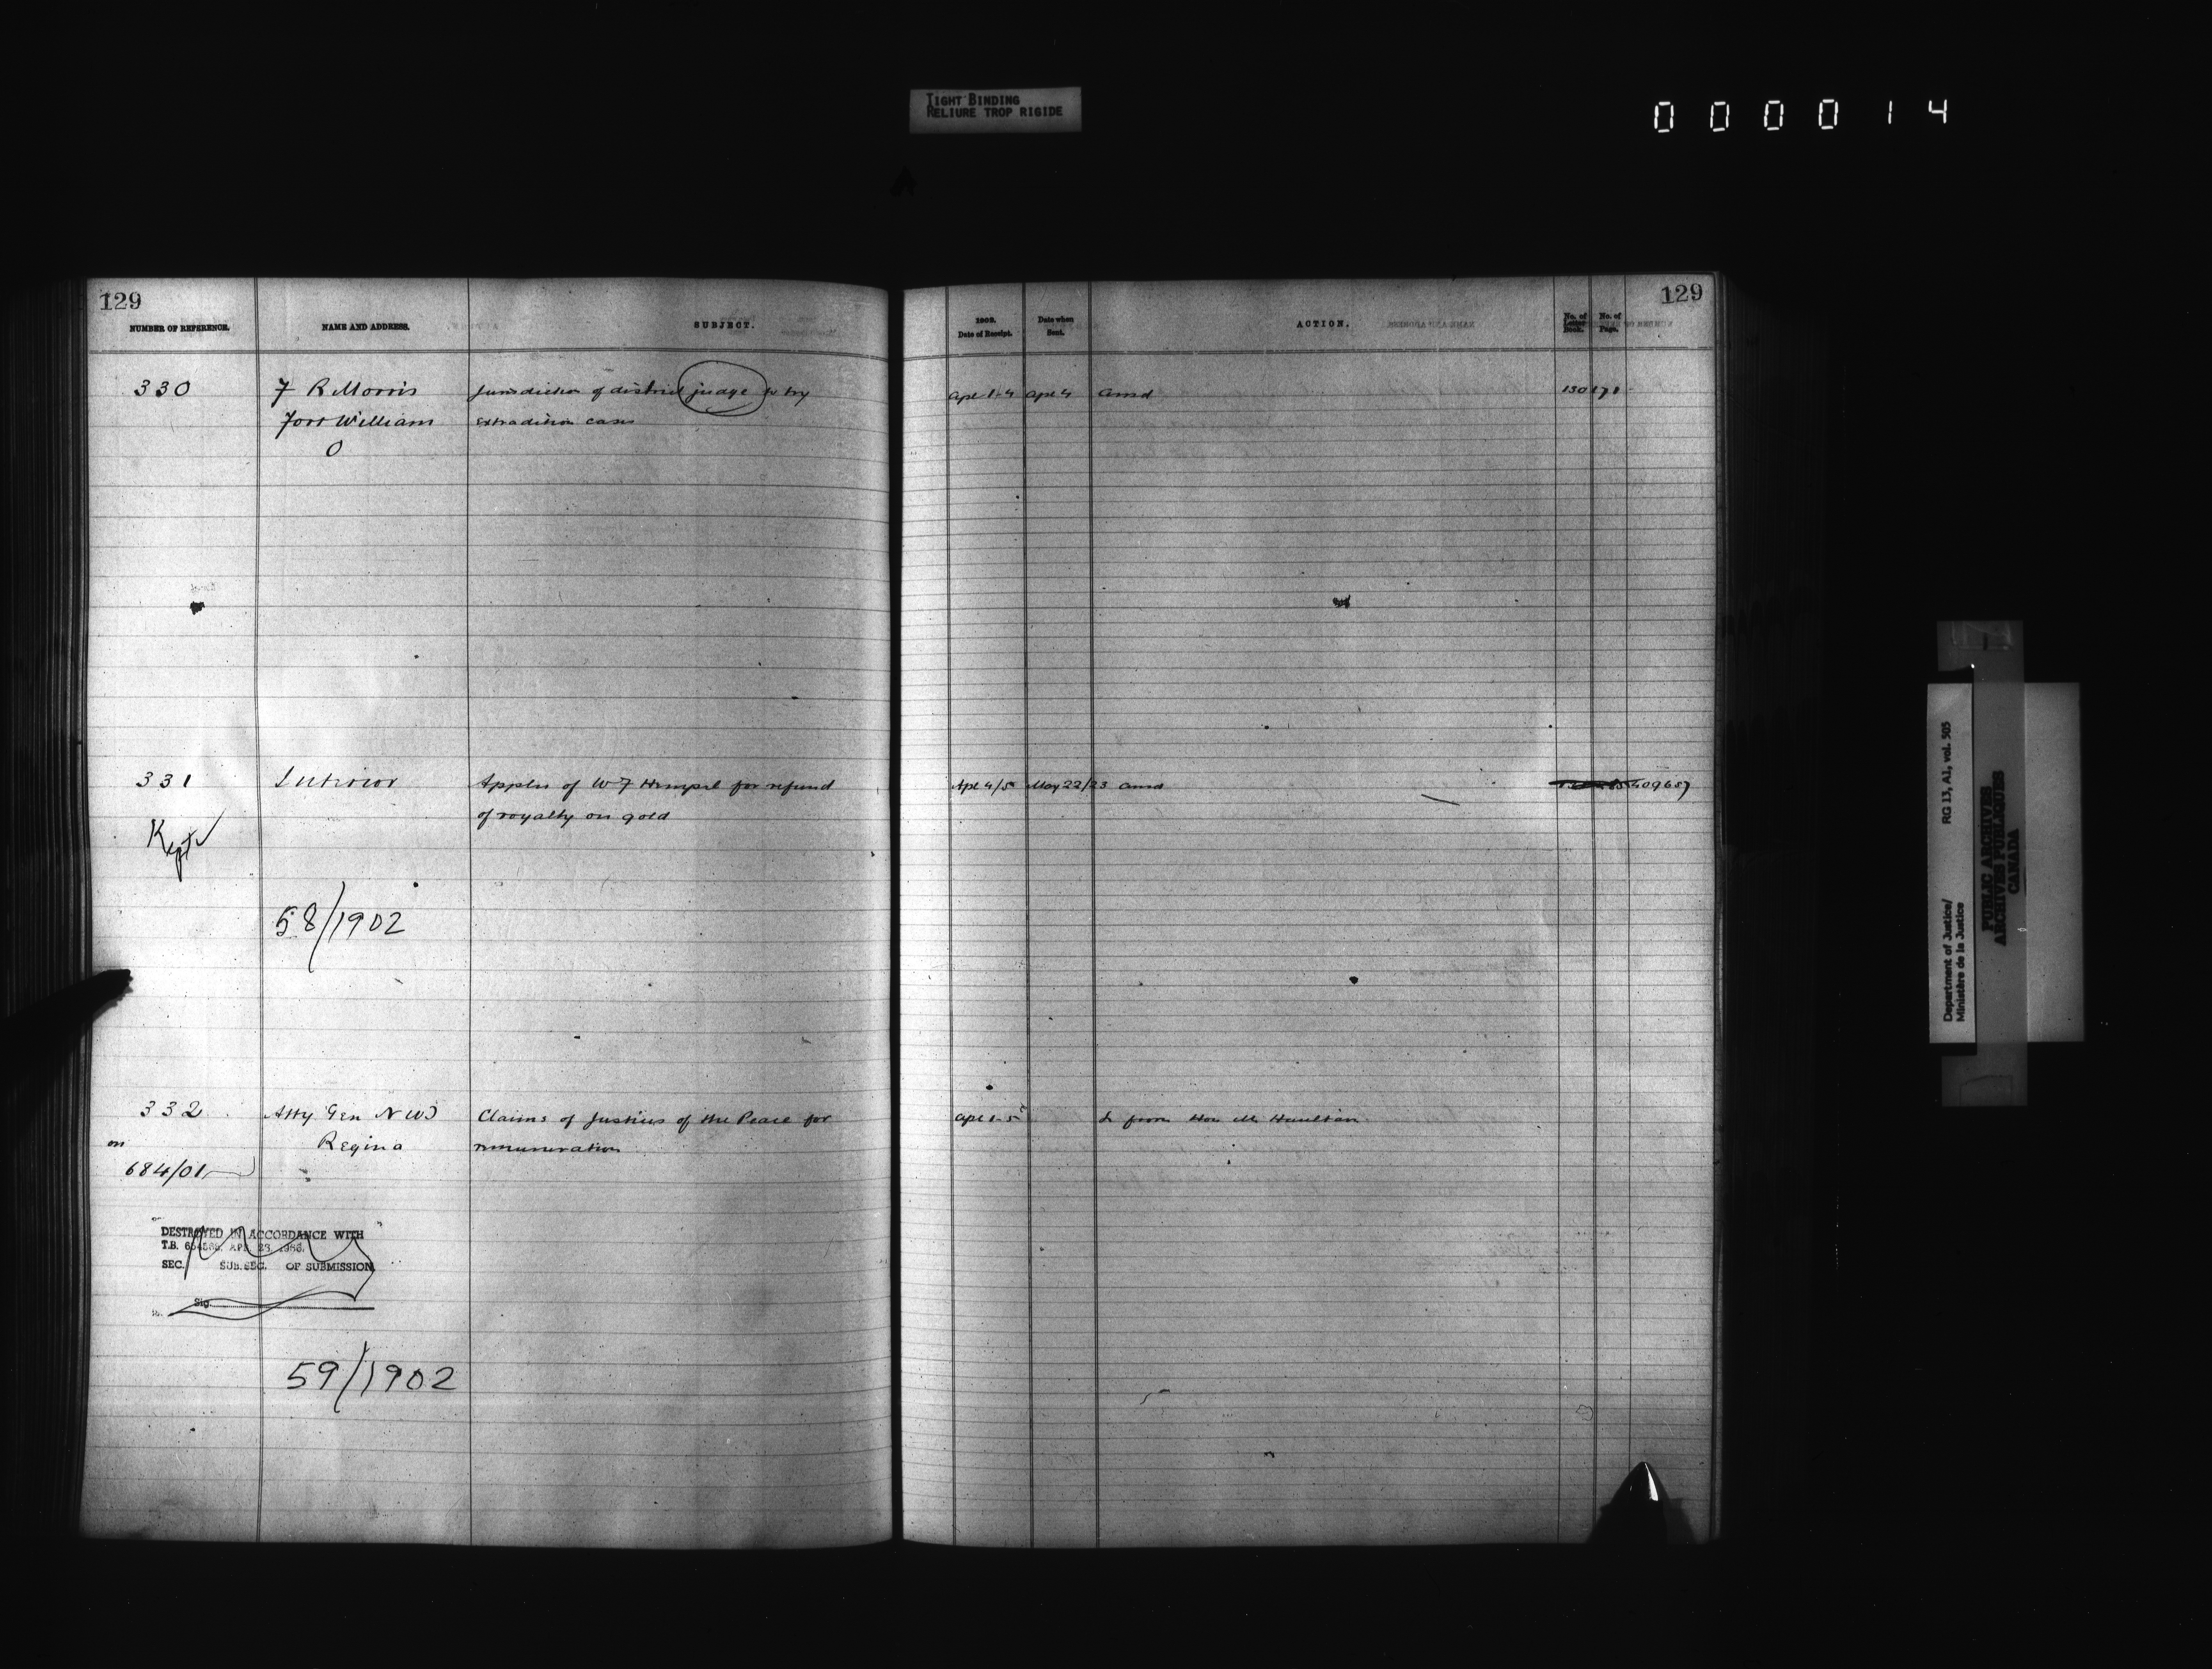 TIGHT BINDING
RELIURE TROP RIGIDE
000014
129
NUMBER OF REFERENCE. NAME AND ADDRESS. SUBJECT.
330 F R Morris Jurisdiction of district judge to try
Fort William extradition cases
O
331 Interior Appln of W F for refund
of royalty on gold
Kept
58/1902
332 Atty Gen N W T Claims of Justices of the Peace for
on Regina remuneration
684/01
DESTROYED IN ACCORDANCE WITH
T.B. APR. 23,
SEC. SUB.SEC. OF SUBMISSION
Sig.
59/1902
129
1902. Date of Receipt. Date when Sent. ACTION. No. of Letter Book. No. of Page.
Apl 1-4 Apl 4 Ansd 130 171
Apl 4/5 May 22/23 Ansd
Apl 1-5 L from Hon Mr Hamilton
Department of Justice/ RG 13, A1, vol. 505
Ministère de la Justice
PUBLIC ARCHIVES
ARCHIVES PUBLIQUES
CANADA